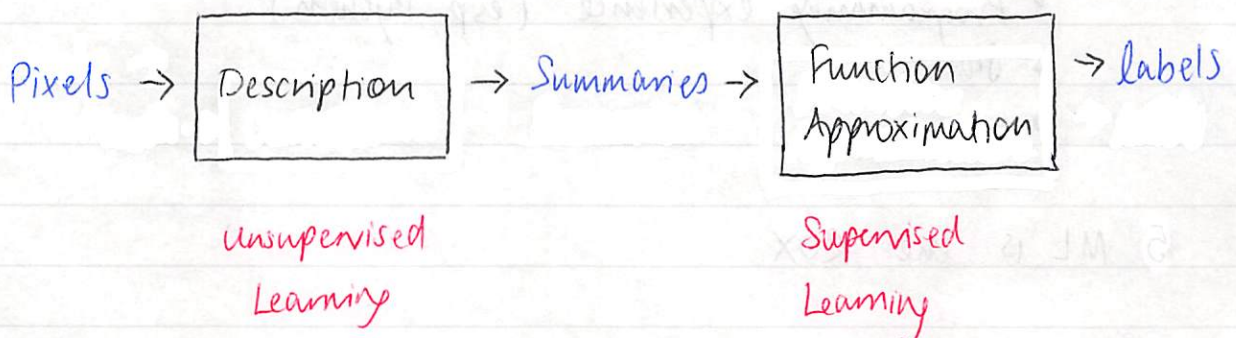 Pixels → Description → Summaries → Function Approximation → labels
Unsupervised Learning
Supervised Learning
5) ML is the ROX